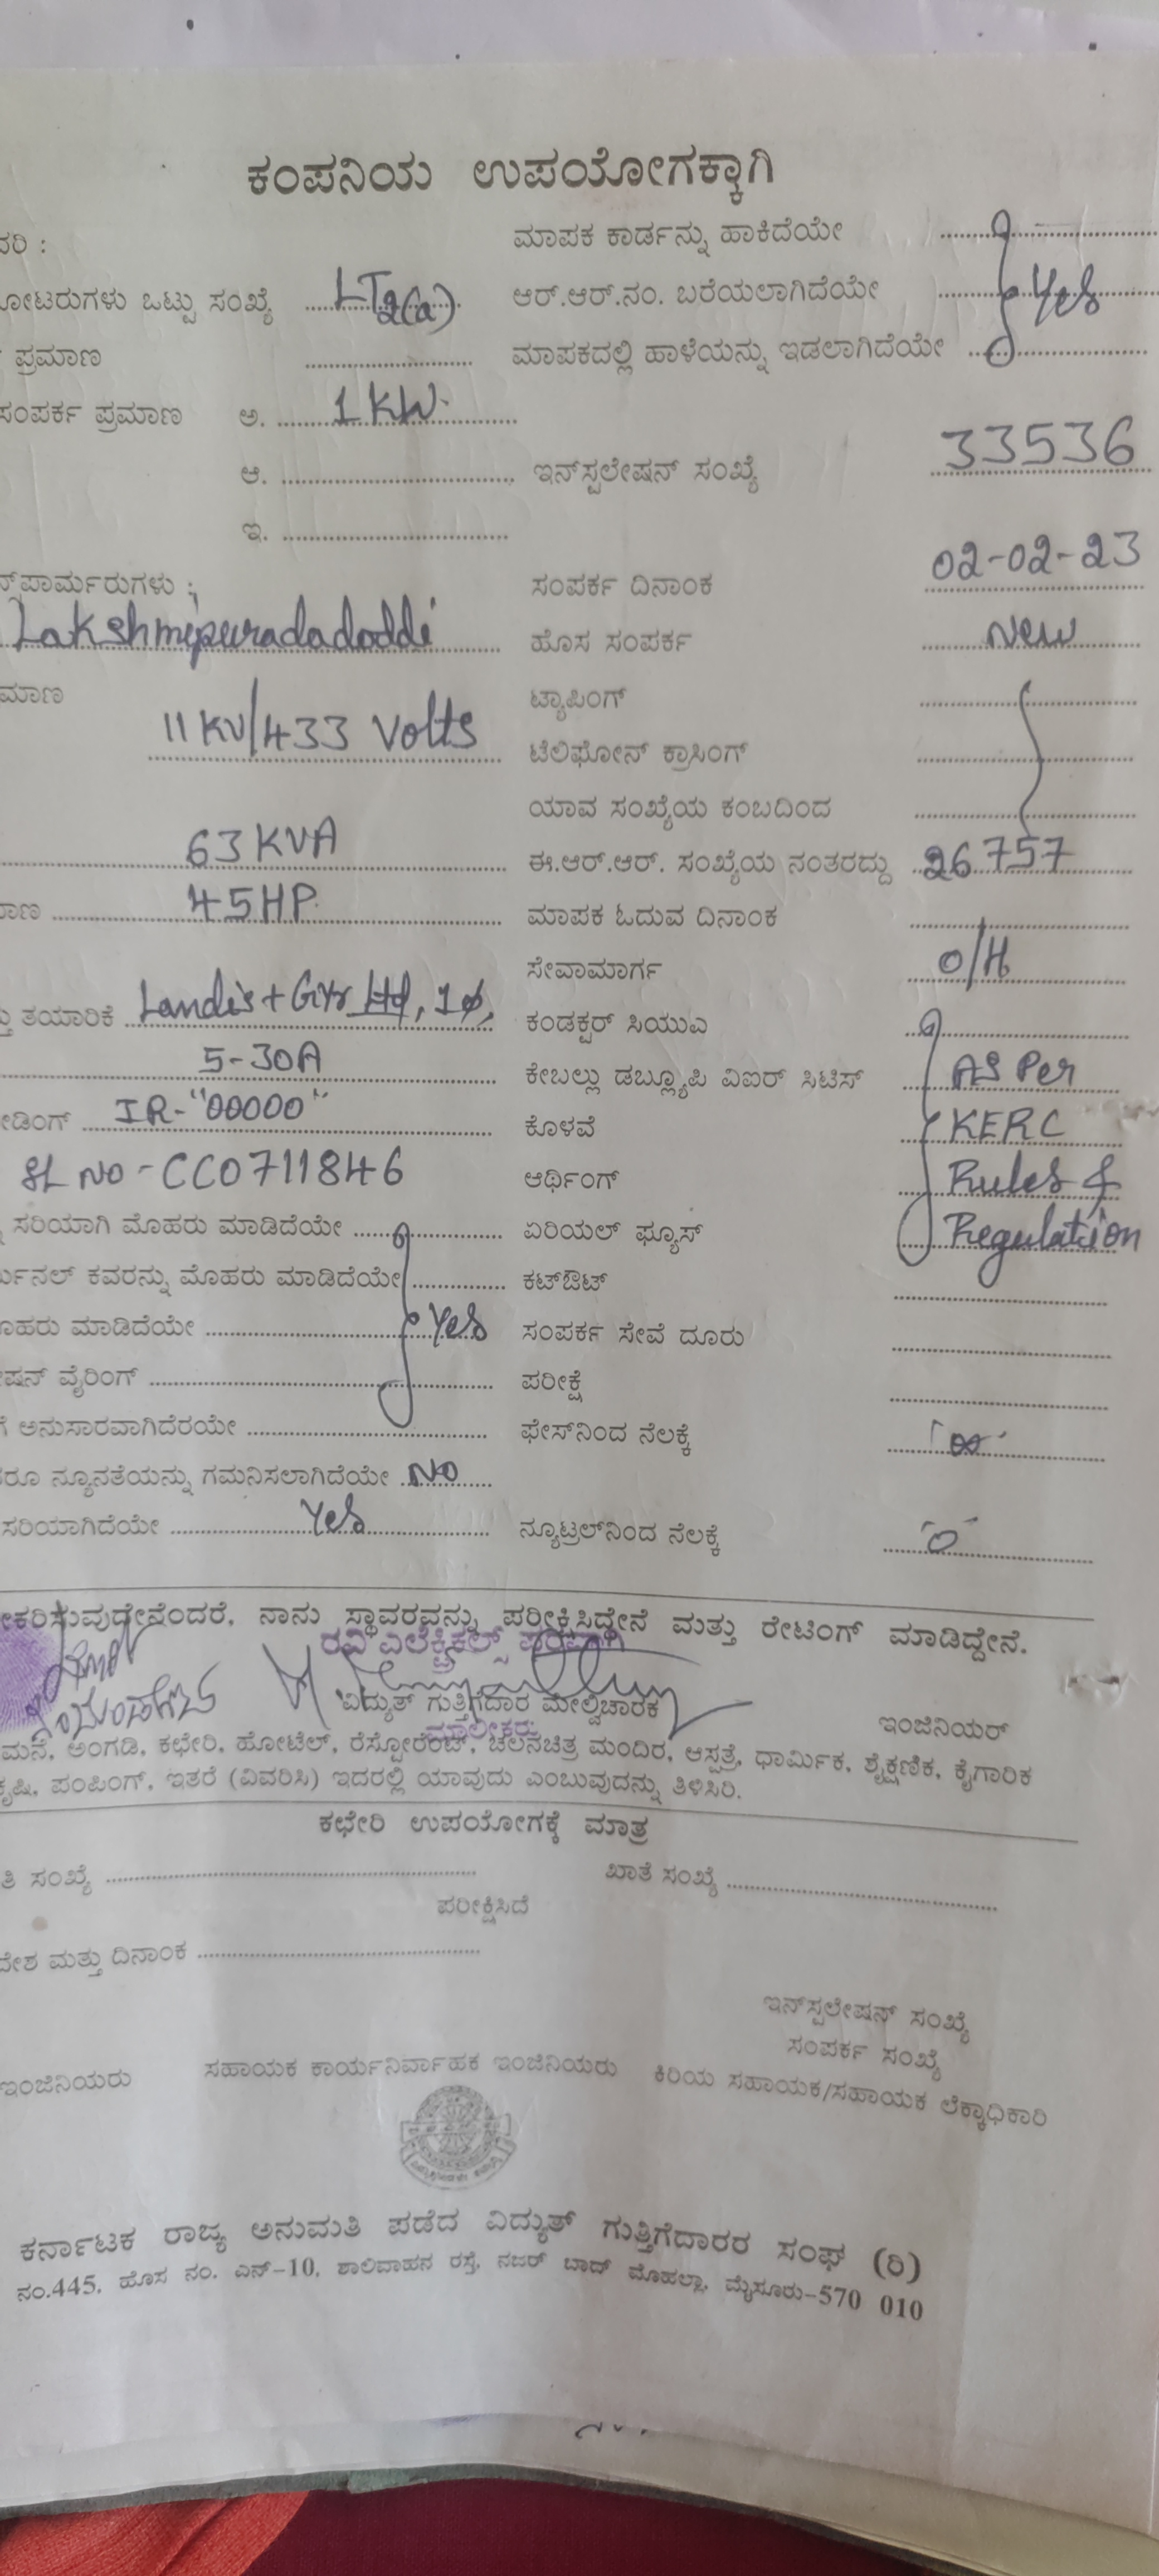 ಕಂಪನಿಯ ಉಪಯೋಗಕ್ಕಾಗಿ
ದರಿ : ಮಾಪಕ ಕಾರ್ಡನ್ನು ಹಾಕಿದೆಯೇ
ೋಟರುಗಳು ಒಟ್ಟು ಸಂಖ್ಯೆ LT2(a) ಆರ್.ಆರ್.ನಂ. ಬರೆಯಲಾಗಿದೆಯೇ Yes
ಪ್ರಮಾಣ ಮಾಪಕದಲ್ಲಿ ಹಾಳೆಯನ್ನು ಇಡಲಾಗಿದೆಯೇ
ಸಂಪರ್ಕ ಪ್ರಮಾಣ ಅ. 1 KW
ಆ. ಇನ್‌ಸ್ಪಲೇಷನ್ ಸಂಖ್ಯೆ 33536
ಇ.
ನ್ಸ್‌ಫಾರ್ಮರುಗಳು : ಸಂಪರ್ಕ ದಿನಾಂಕ 02-02-23
Lakshmipuradadoddi ಹೊಸ ಸಂಪರ್ಕ New
ಮಾಣ ಟ್ಯಾಪಿಂಗ್
11 KV/433 Volts ಟೆಲಿಫೋನ್ ಕ್ರಾಸಿಂಗ್
ಯಾವ ಸಂಖ್ಯೆಯ ಕಂಬದಿಂದ
63 KVA ಈ.ಆರ್.ಆರ್. ಸಂಖ್ಯೆಯ ನಂತರದ್ದು 26757
ಾಣ 45HP ಮಾಪಕ ಓದುವ ದಿನಾಂಕ
ಸೇವಾಮಾರ್ಗ O/H
ತು ತಯಾರಿಕೆ Landis+Gyr Ltd, 1ø, ಕಂಡಕ್ಟರ್ ಸಿಯುಎ
5-30A ಕೇಬಲ್ಲು ಡಬ್ಲ್ಯೂಪಿ ವಿಐರ್ ಸಿಟಿಸ್ AS Per
ೀಡಿಂಗ್ IR-"00000" ಕೊಳವೆ KERC
SL NO - CC0711846 ಆರ್ಥಿಂಗ್ Rules &
ಸರಿಯಾಗಿ ಮೊಹರು ಮಾಡಿದೆಯೇ ಏರಿಯಲ್ ಫ್ಯೂಸ್ Regulation
ರ್ಮಿನಲ್ ಕವರನ್ನು ಮೊಹರು ಮಾಡಿದೆಯೇ ಕಟ್‌ಔಟ್
ೊಹರು ಮಾಡಿದೆಯೇ Yes ಸಂಪರ್ಕ ಸೇವೆ ದೂರು
ೇಷನ್ ವೈರಿಂಗ್ ಪರೀಕ್ಷೆ
ಗೆ ಅನುಸಾರವಾಗಿದೆರಯೇ ಫೇಸ್‌ನಿಂದ ನೆಲಕ್ಕೆ ∞
ರೂ ನ್ಯೂನತೆಯನ್ನು ಗಮನಿಸಲಾಗಿದೆಯೇ NO
ಸರಿಯಾಗಿದೆಯೇ Yes ನ್ಯೂಟ್ರಲ್‌ನಿಂದ ನೆಲಕ್ಕೆ 0
ೀಕರಿಸುವುದೇನೆಂದರೆ, ನಾನು ಸ್ಥಾವರವನ್ನು ಪರೀಕ್ಷಿಸಿದ್ದೇನೆ ಮತ್ತು ರೇಟಿಂಗ್ ಮಾಡಿದ್ದೇನೆ.
ರವಿ ಎಲೆಕ್ಟ್ರಿಕಲ್ಸ್ ಪರವಾಗಿ
ವಿದ್ಯುತ್ ಗುತ್ತಿಗೆದಾರ ಮೇಲ್ವಿಚಾರಕ ಇಂಜಿನಿಯರ್
ಮಾಲೀಕರು
ಮನೆ, ಅಂಗಡಿ, ಕಛೇರಿ, ಹೋಟೆಲ್, ರೆಸ್ಟೋರೆಂಟ್, ಚಲನಚಿತ್ರ ಮಂದಿರ, ಆಸ್ಪತ್ರೆ, ಧಾರ್ಮಿಕ, ಶೈಕ್ಷಣಿಕ, ಕೈಗಾರಿಕ
ಕೃಷಿ, ಪಂಪಿಂಗ್, ಇತರೆ (ವಿವರಿಸಿ) ಇದರಲ್ಲಿ ಯಾವುದು ಎಂಬುವುದನ್ನು ತಿಳಿಸಿರಿ.
ಕಛೇರಿ ಉಪಯೋಗಕ್ಕೆ ಮಾತ್ರ
ತಿ ಸಂಖ್ಯೆ ಖಾತೆ ಸಂಖ್ಯೆ
ಪರೀಕ್ಷಿಸಿದೆ
ದೇಶ ಮತ್ತು ದಿನಾಂಕ
ಇನ್‌ಸ್ಪಲೇಷನ್ ಸಂಖ್ಯೆ
ಸಂಪರ್ಕ ಸಂಖ್ಯೆ
ಇಂಜಿನಿಯರು ಸಹಾಯಕ ಕಾರ್ಯನಿರ್ವಾಹಕ ಇಂಜಿನಿಯರು ಕಿರಿಯ ಸಹಾಯಕ/ಸಹಾಯಕ ಲೆಕ್ಕಾಧಿಕಾರಿ
ಕರ್ನಾಟಕ ರಾಜ್ಯ ಅನುಮತಿ ಪಡೆದ ವಿದ್ಯುತ್ ಗುತ್ತಿಗೆದಾರರ ಸಂಘ (ರಿ)
ನಂ.445, ಹೊಸ ನಂ. ಎನ್-10, ಶಾಲಿವಾಹನ ರಸ್ತೆ, ನಜರ್ ಬಾದ್ ಮೊಹಲ್ಲಾ, ಮೈಸೂರು-570 010